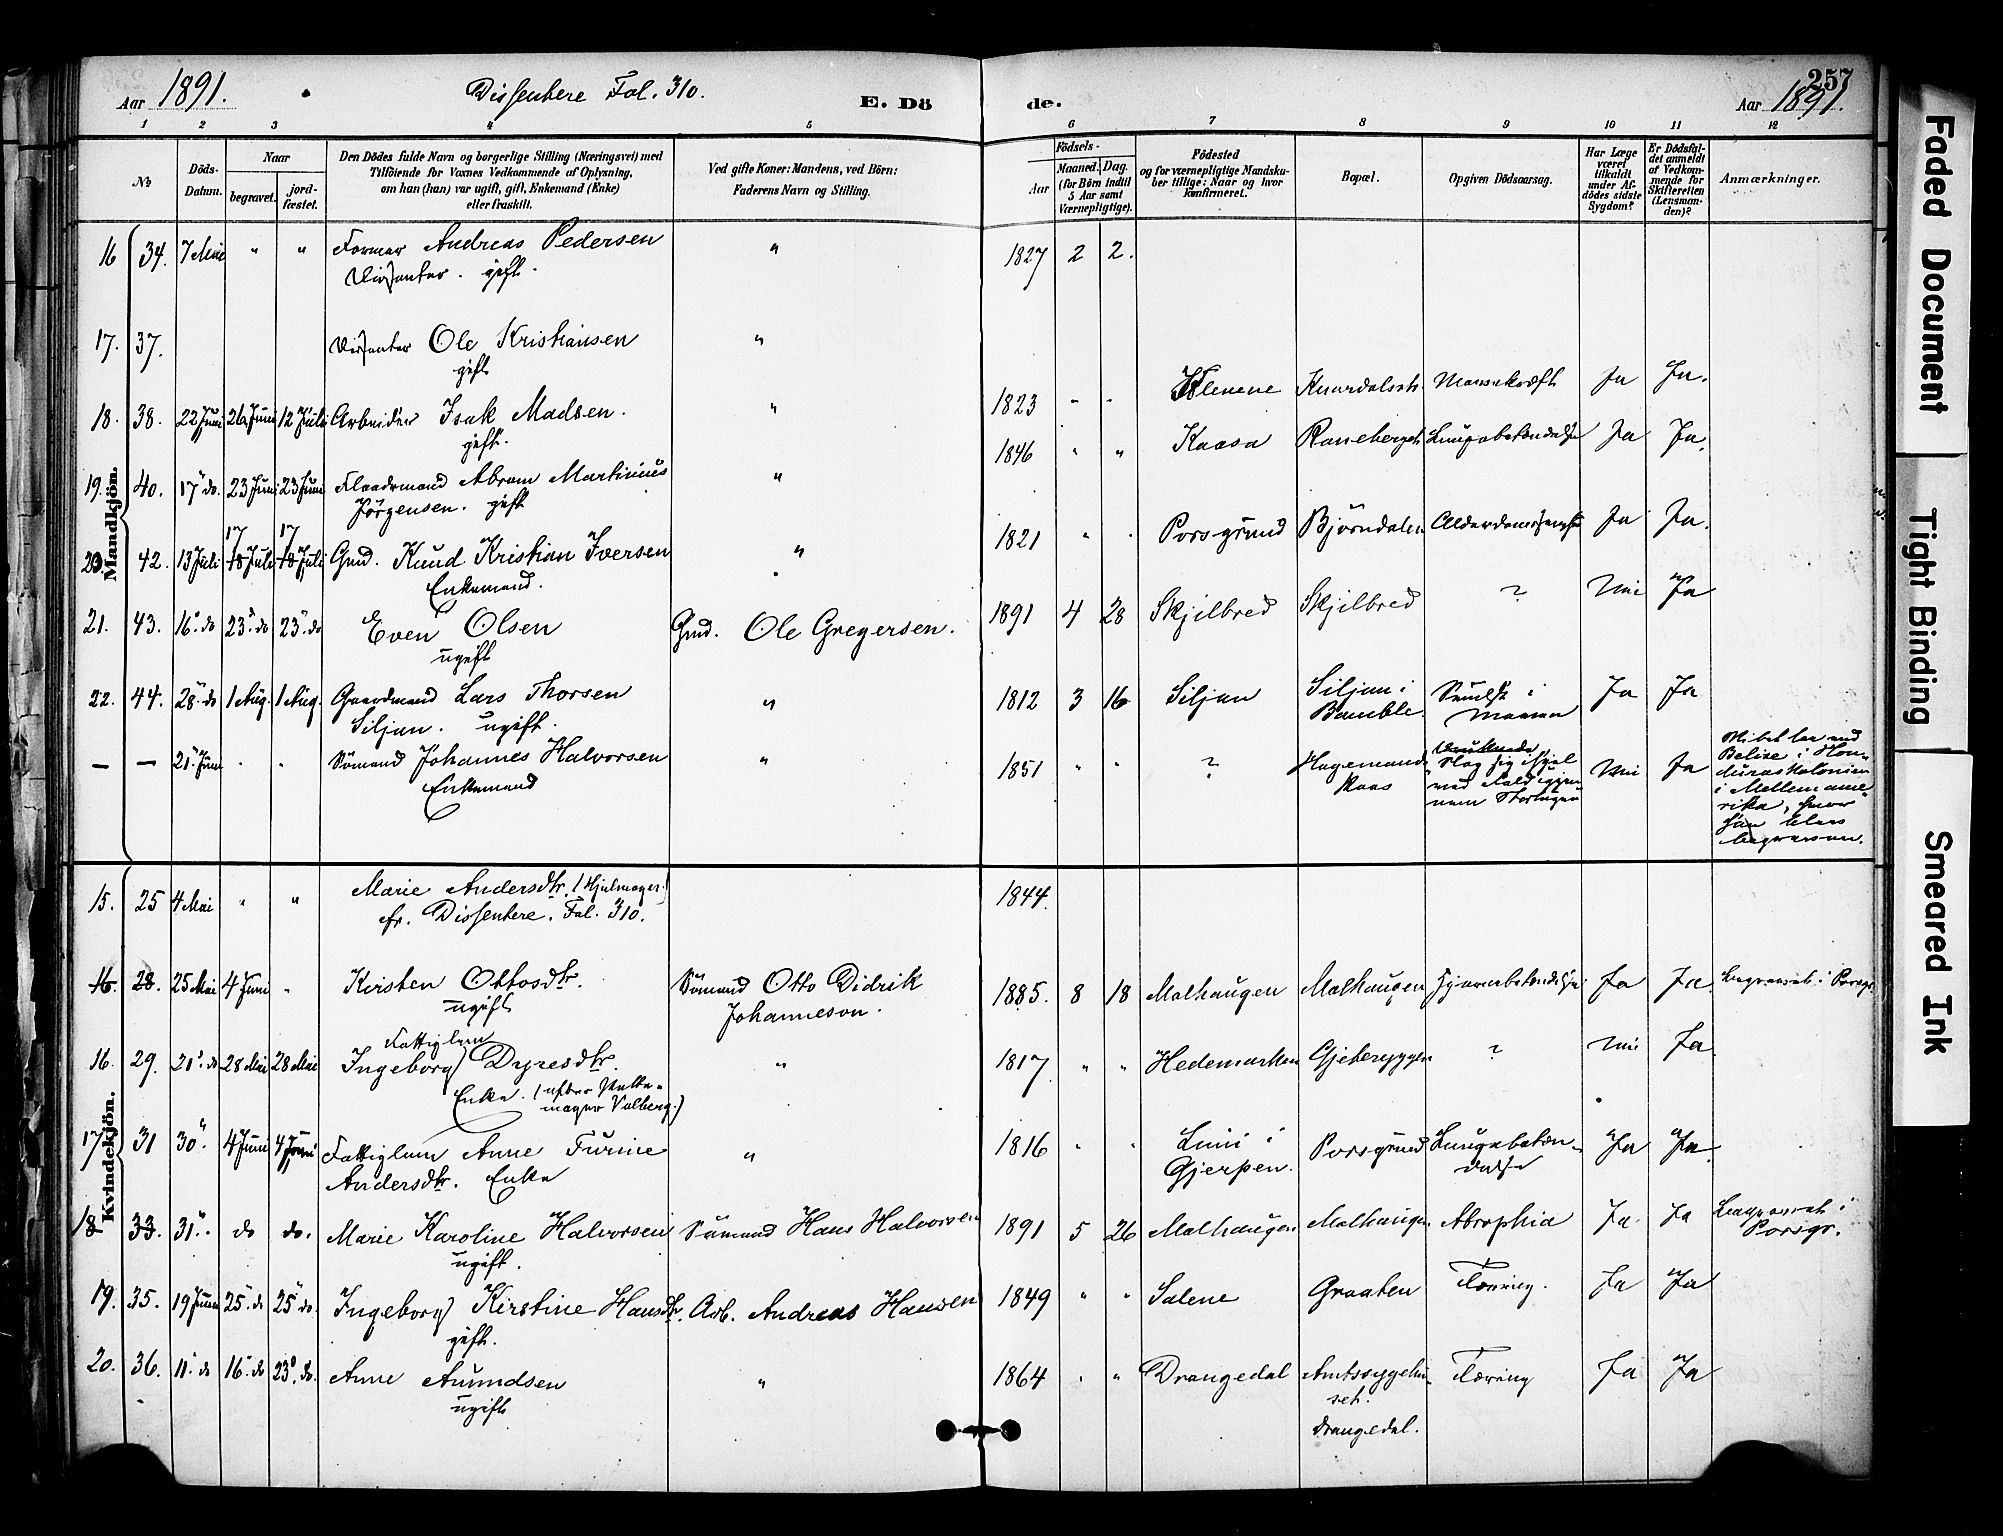 257
Aar 1891. Dissentere Fol. 310. E. Döde. Aar 1891.
1 2 3 4 5 6 7 8 9 10 11 12
No
Döds-Datum.
Naar
begravet. jordfæstet.
Den Dödes fulde Navn og borgerlige Stilling (Næringsvei) med
Tilföiende for Voxnes Vedkommende af Oplysning,
om han (hun) var ugift, gift, Enkemand (Enke)
eller fraskilt.
Ved gifte Koner: Mandens, ved Börn:
Faderens Navn og Stilling.
Födsels-
Aar Maaned. Dag.
(for Börn indtil
5 Aar samt
Værnepligtige).
Födested
og for værnepligtige Mandskaber tillige: Naar og hvor
konfirmeret.
Bopæl.
Opgiven Dödsaarsag.
Har Læge
været
tilkaldt
under Afdödes sidste
Sygdom?
Er Dödsfaldet anmeldt
af Vedkommende for
Skifteretten
(Lensmanden)?
Anmærkninger.
Mandkjön.
16 34. 7 Mai " " Former Andreas Pedersen " 1827 2 2.
Dissenter. gift.
17. 37. Dissenter Ole Kristiansen "
gift
18. 38. 22 Juni 26 Juni 12 Juli Arbeider Isak Madsen. " 1823 - - Klevene Knardalsstr. Marasmus Ja Ja.
gift.
19. 40. 17 do. 23 Juni 23 Juni Abram Martinius " 1846 " " Kaasa Raneberget Lungebetændelse Ja Ja.
Jørgensen. gift
20. 42. 13 Juli 17 18 Juli 17 18 Juli Gmd. Knud Kristian Iversen " 1821 " . Porsgrund Björndalen Alderdomssvaghed Ja Ja.
Enkemand.
21. 43. 16. do 23. do 23. do Even Olsen Gmd. Ole Gregersen. 1891 4 28 Skjilbred Skjilbred ? Nei Ja
ugift
22. 44. 28. do 1 Aug. 1 Aug. Gaardmand Lars Thorsen " 1812 3 16 Siljan Siljan i Bamble. i Maven Ja Ja
Siljan. ugift.
— — 21. Juni . . Sömand Johannes Halvorsen " 1851 " " ? Slog sig ihjel ved Fald igjennem Storlugen Nei Ja
Enkemand
Belize i Honduras Kolonien
i Mellemamerika, hvor
han blev
begraven.
Kvindekjön.
15. 25 4 Mai " " Marie Andersdtr. (Hjulmager) 1844.
cfr. Dissentere. Fol. 310.
16. 28. 25 Mai 4 Juni " Kirsten Ottosdtr. Sömand Otto Didrik 1885. 8 18 Malhaugen Malhaugen Hjernebetændelse Ja Ja. begravet i Porsgr.
ugift Johanneson.
16. 29. 21. do 28 Mai 28 Mai Fattiglem
Ingeborg Dyresdtr. " 1817 " " Hedemarken Gjeteryggen ? Nei Ja.
Enke. (efter
mager Valberg.)
17 31 30. 4 Juni 4 Juni Fattiglem Anne Turine " 1816 " " Luni i Porsgrund Lungebetændelse Ja Ja.
Andersdtr. Enke Gjerpen.
18 33. 31. do do. Marie Karoline Halvorsen Sömand Hans Halvorsen 1891 5 26 Malhaugen Malhaugen Atrophia Ja Ja begravet i
ugift. Porsgr.
19. 35. 19 Juni 25. do 25 do. Ingeborg Kirstine Hansdtr. Arb. Andreas Hansen 1849 " " Salene Graaten Tæring. Ja Ja
gift.
20. 36. 11. do 16. do 23. do. Anne Amundsen " 1864 . " Drangedal Amtssygehuset. Tæring Ja Ja
ugift Drangedal.
Faded Document
Tight Binding
Smeared Ink